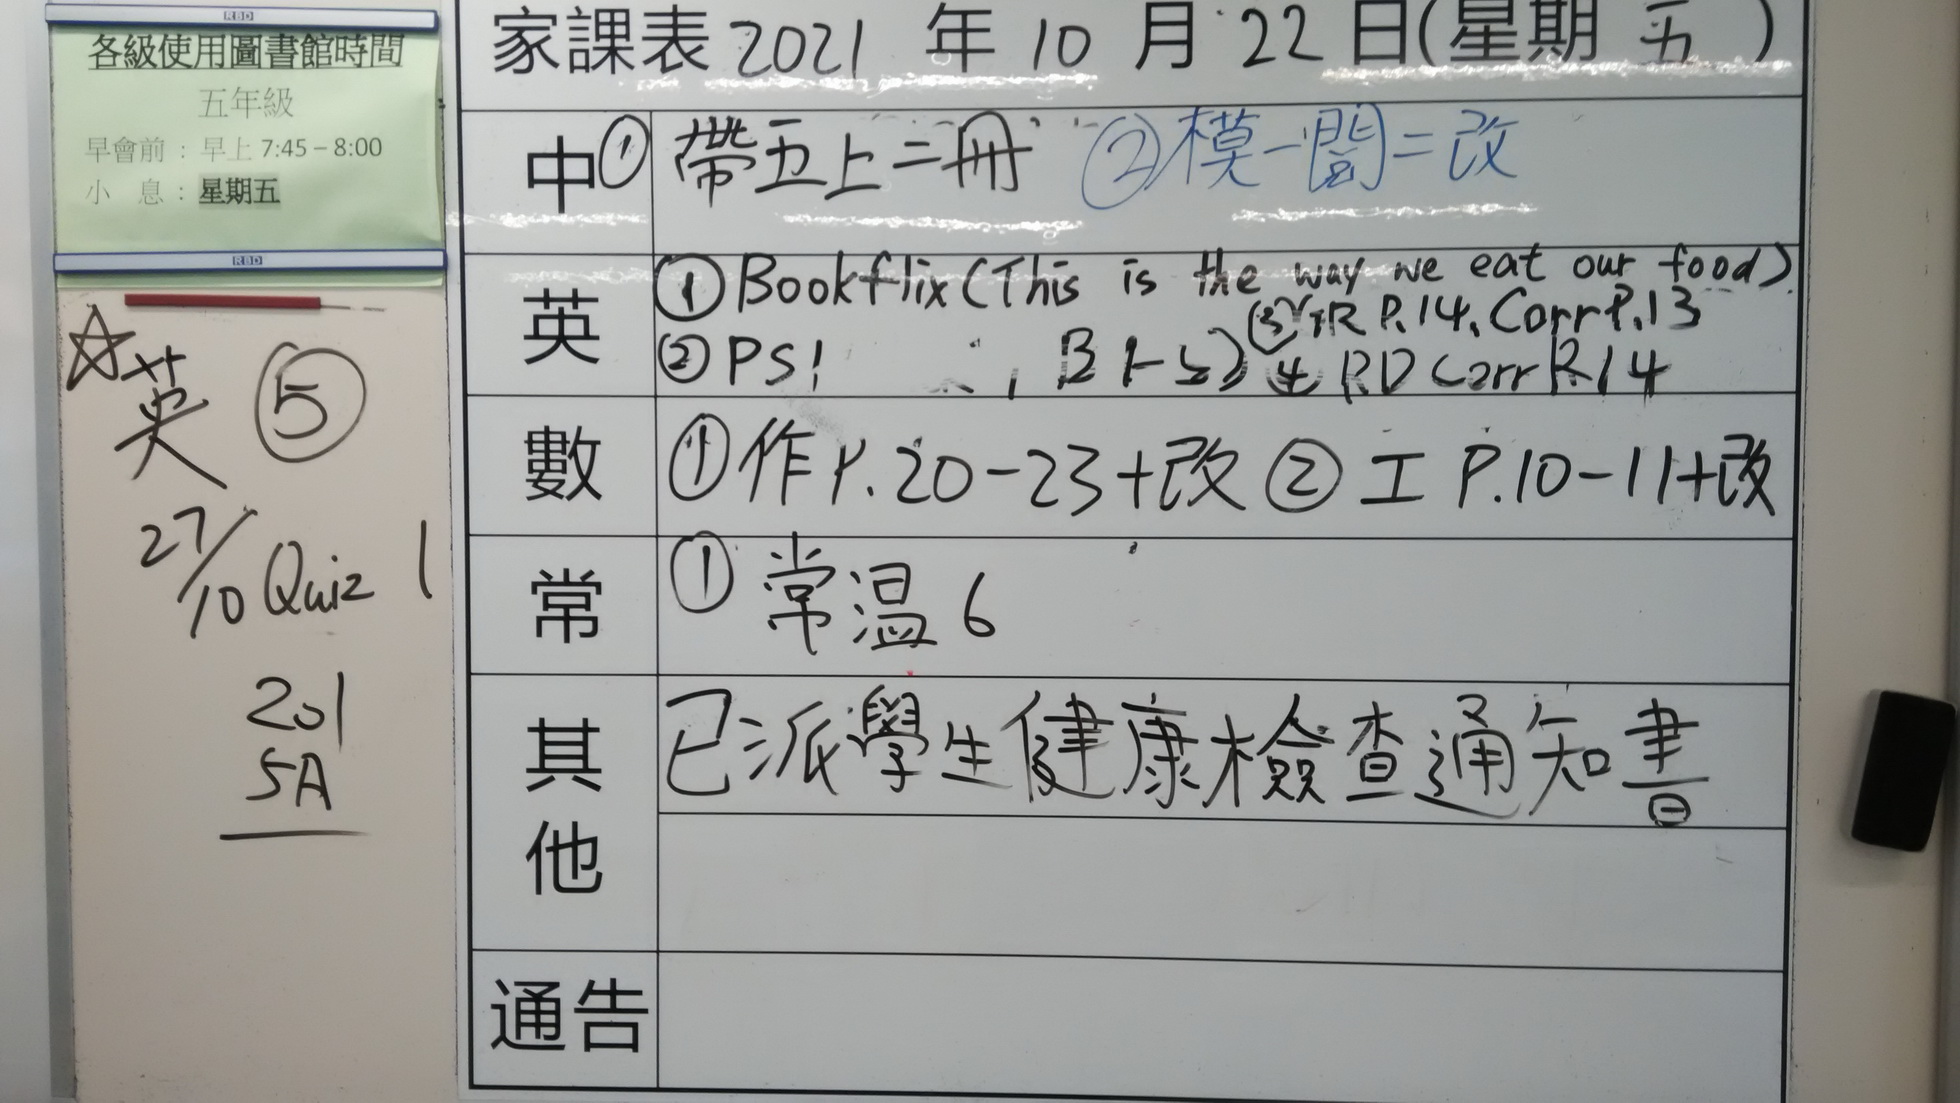 RBD
各級使用圖書館時間
五年級
早會前 : 早上 7:45 – 8:00
小 息 : 星期五
RBD
☆英 ⑤
27/10 Quiz 1
201
5A
家課表 2021 年 10 月 22 日(星期 五 )
中 ① 帶五上二冊 ② 模一閱二改
英 ① Bookflix (This is the way we eat our food)
② PS1
③ R P.14, Corr P.13
④ RD Corr P.14
數 ① 作 P.20-23+改 ② 工 P.10-11+改
常 ① 常温 6
其他 已派學生健康檢查通知書
通告